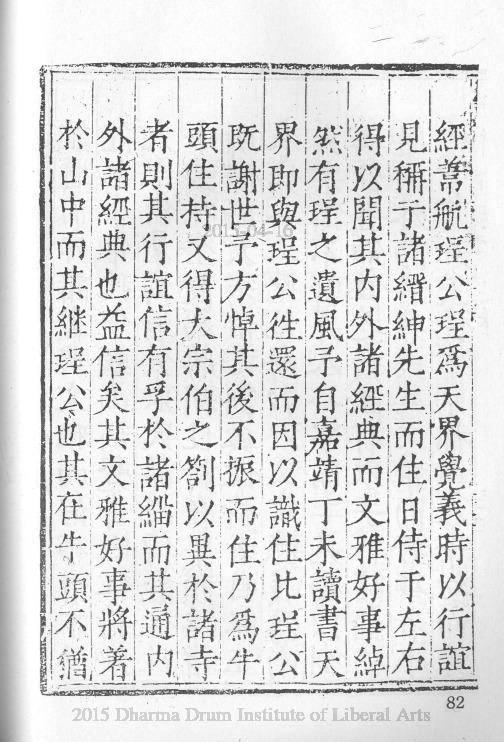 經嘗航理公理爲天界覺義時以行誼
見稱于諸縉紳先生而住日侍于左右
得以聞其內外諸經典而文雅好事綽
然有理之遺風予自嘉靖丁未讀書天
界即與理公徃還而因以識住比理公
既謝世予方悼其後不振而住乃爲牛
頭住持又得大宗伯之劄以異於諸寺
者則其行誼信有孚於諸緇而其通內
外諸經典也益信矣其文雅好事將著
於山中而其継理公也其在牛頭不
82
2015-04-16
2015 Dharma Drum Institute of Liberal Arts